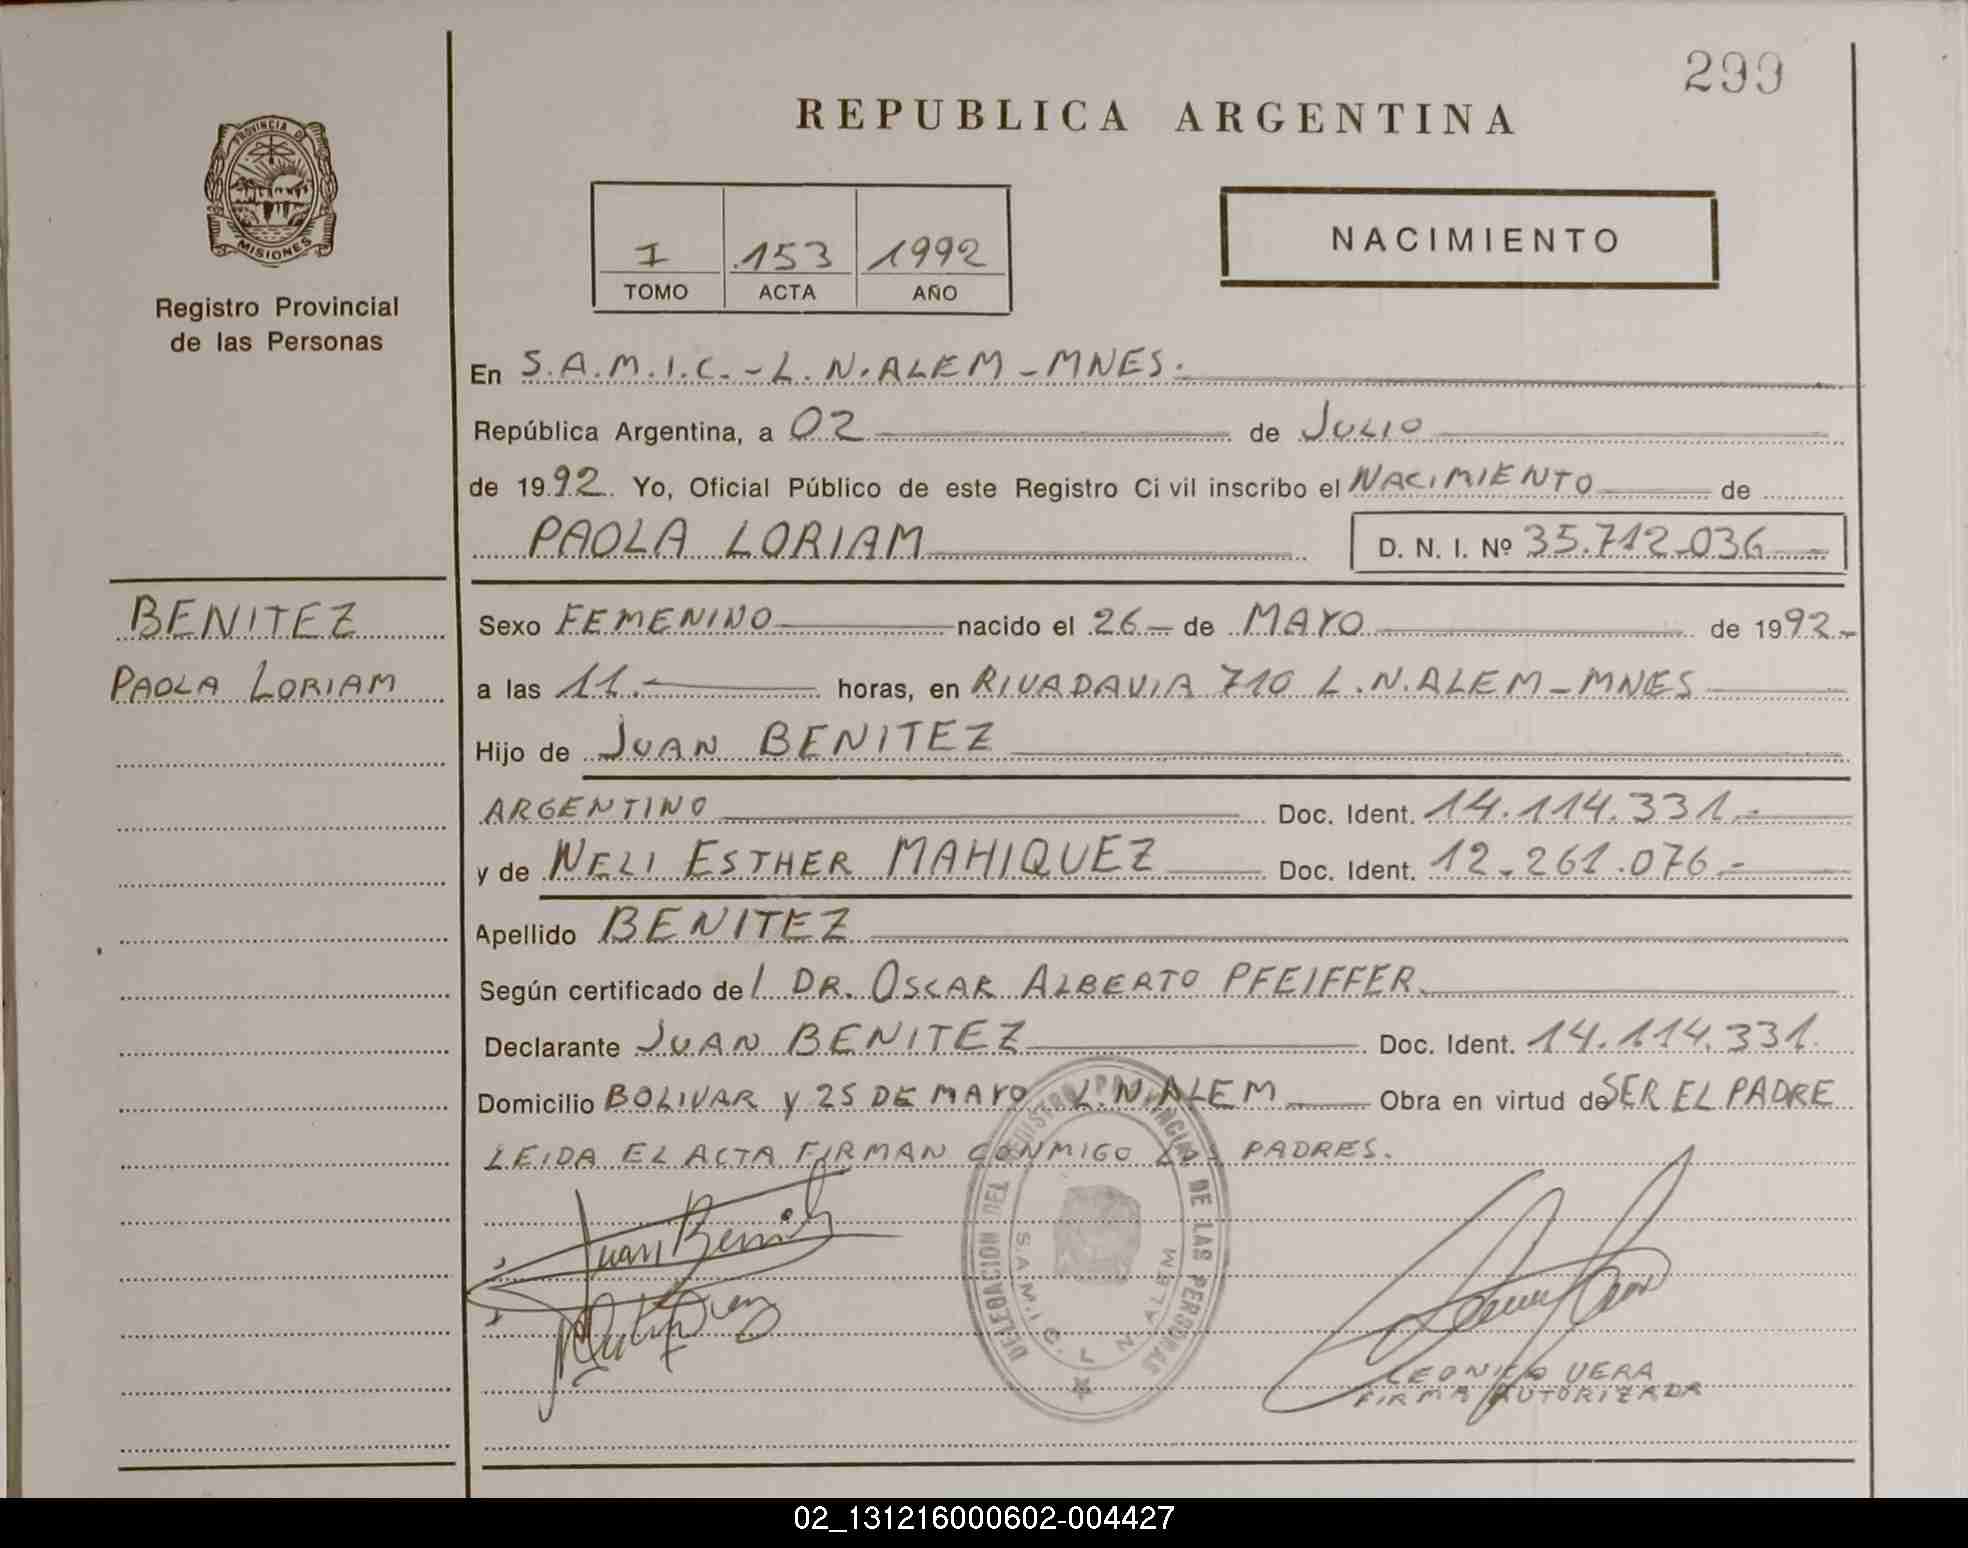 299
REPUBLICA ARGENTINA
PROVINCIA DE
MISIONES
Registro Provincial
de las Personas
I .153 1992
TOMO ACTA AÑO
NACIMIENTO
En S.A.M.I.C.-L.N.ALEM-MNES.
República Argentina, a 02 de JULIO
de 1992. Yo, Oficial Público de este Registro Ci vil inscribo el NACIMIENTO de
PAOLA LORIAM D. N. I. Nº 35.712.036
BENITEZ
PAOLA LORIAM
Sexo FEMENINO nacido el 26 de MAYO de 1992.-
a las 11.- horas, en RIVADAVIA 710 L.N.ALEM-MNES
Hijo de JUAN BENITEZ
ARGENTINO Doc. Ident. 14.114.331.-
y de NELI ESTHER MAHIQUEZ Doc. Ident. 12.261.076.-
Apellido BENITEZ
Según certificado del DR. OSCAR ALBERTO PFEIFFER.
Declarante JUAN BENITEZ Doc. Ident. 14.114.331.
Domicilio BOLIVAR y 25 DE MAYO L.N.ALEM Obra en virtud de SER EL PADRE
LEIDA EL ACTA FIRMAN CONMIGO LOS PADRES.
Juan Benitez
DELEGACION DEL REGISTRO PROVINCIAL DE LAS PERSONAS
S.A.M.I.C. L. N. ALEM
LEONICO VERA
FIRMA AUTORIZADA
02_131216000602-004427